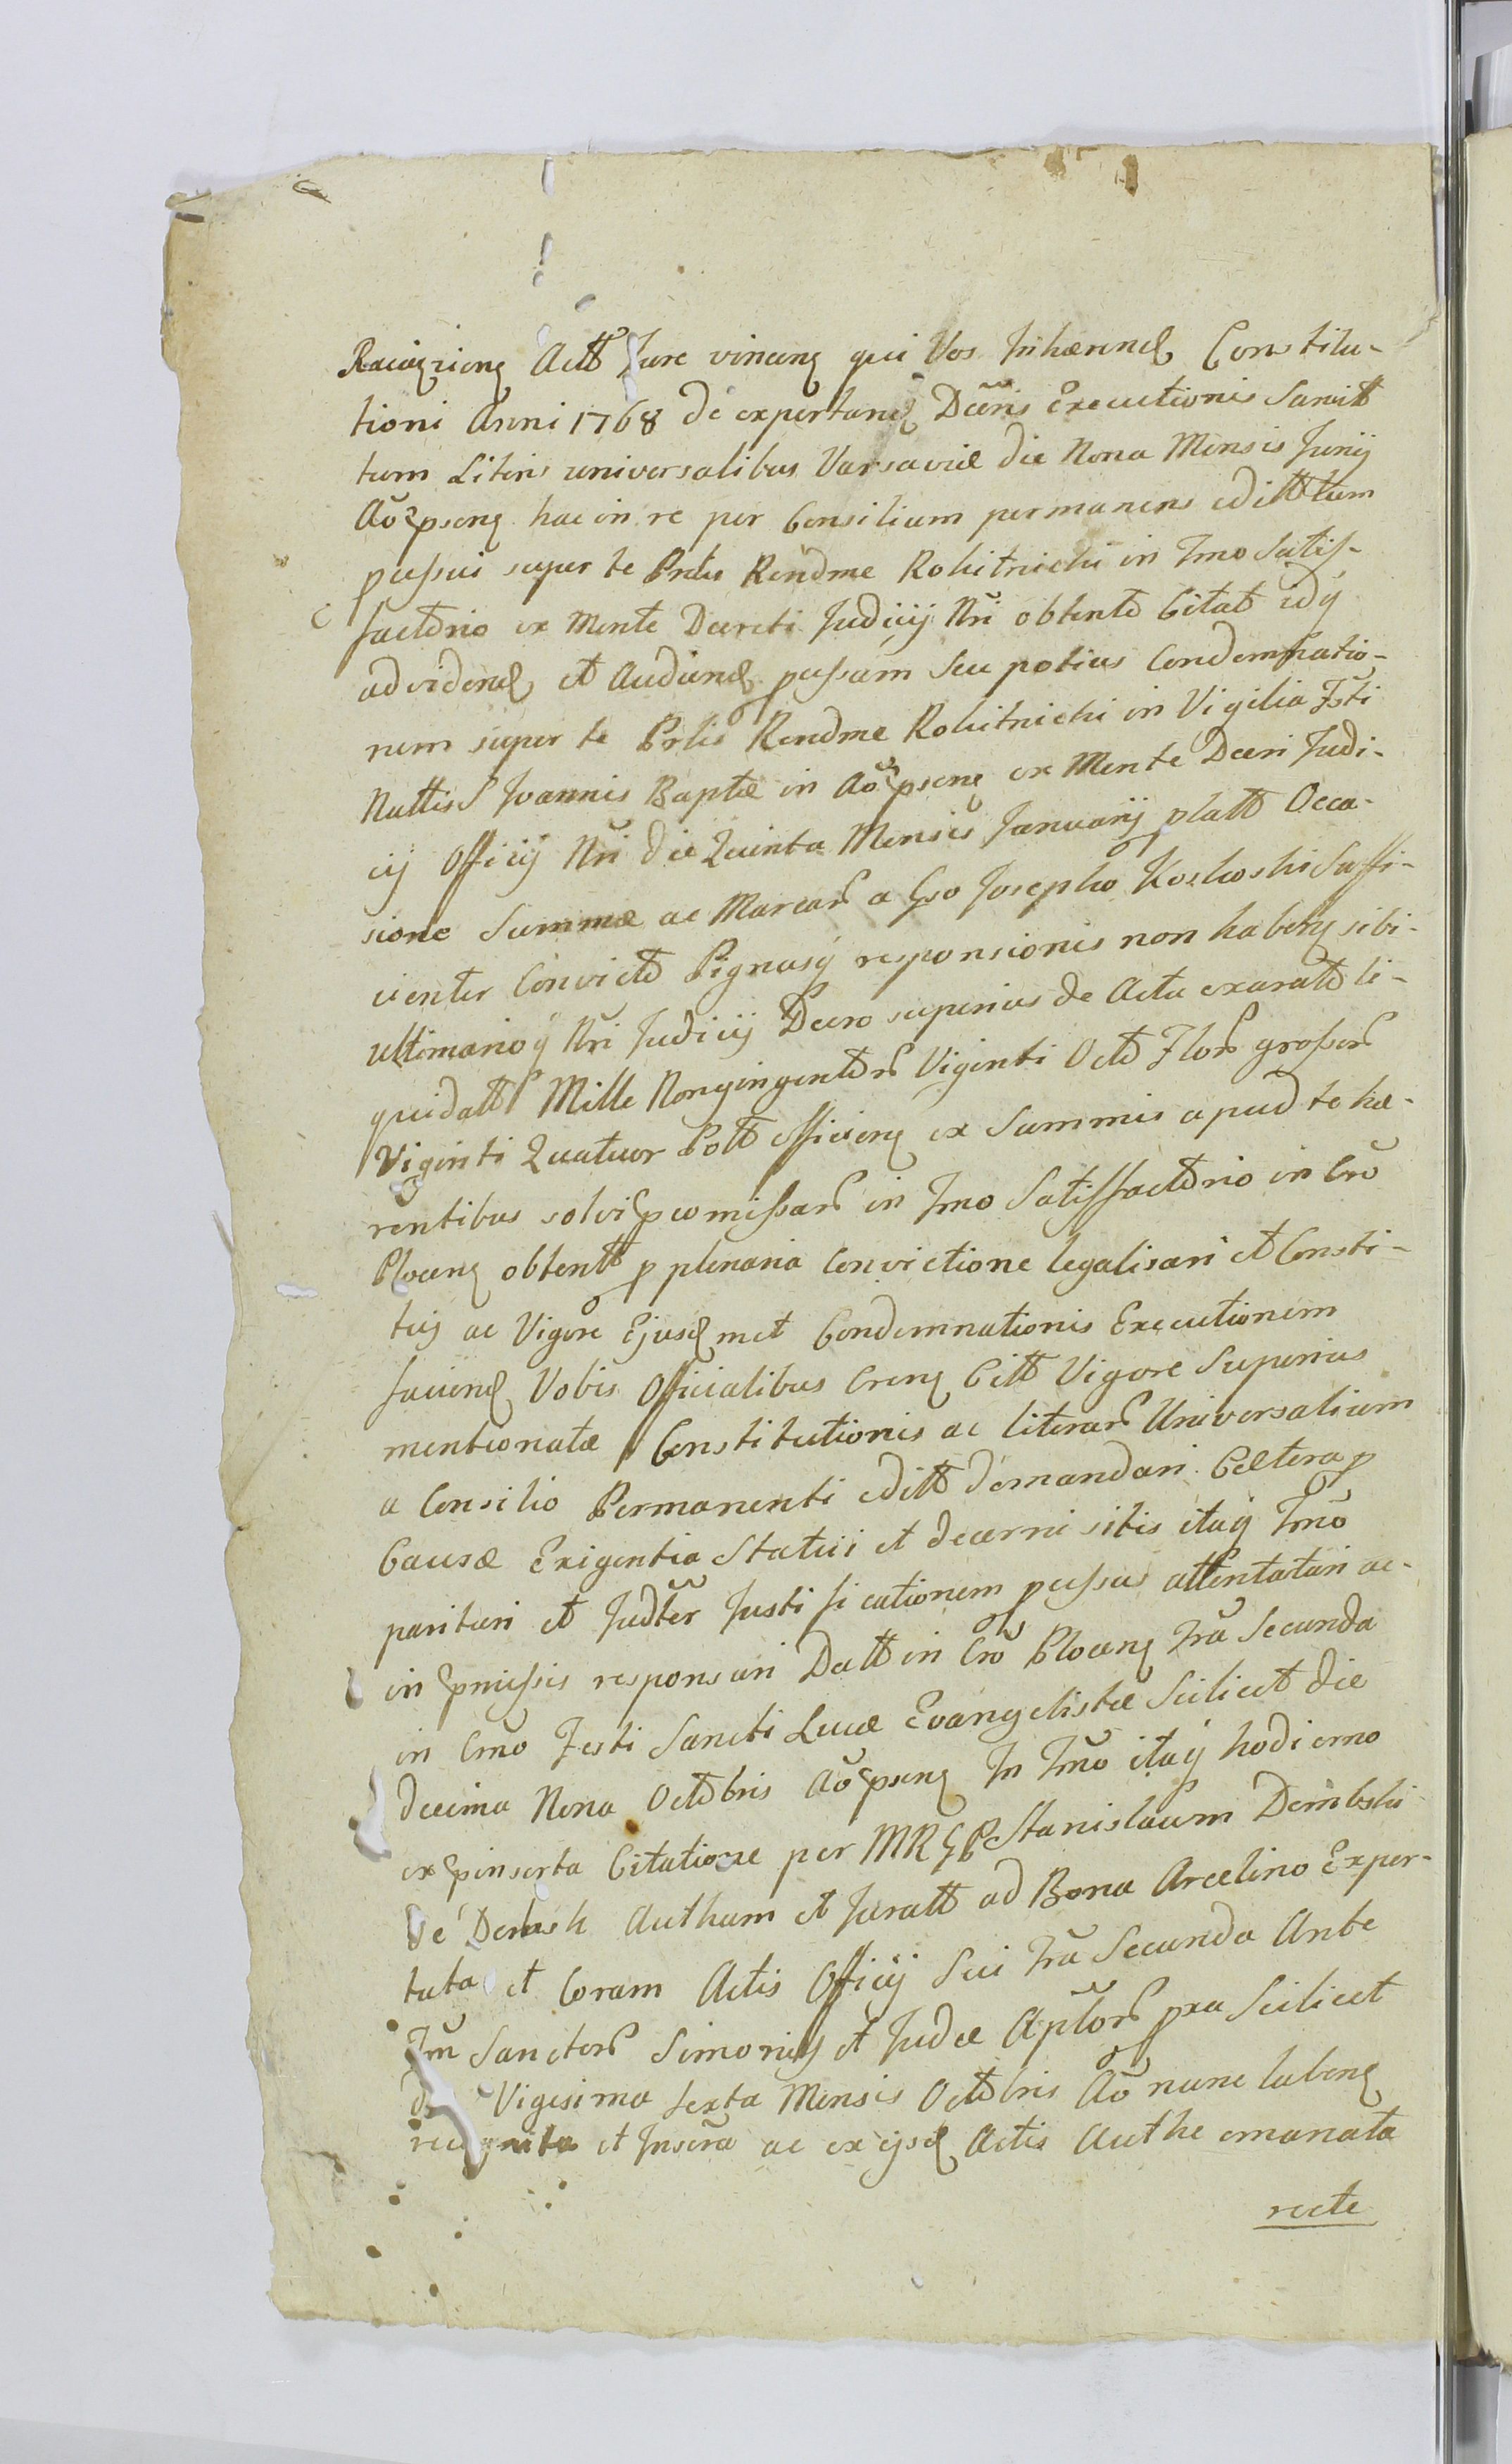 Raciązieng Actt Jure vinceng qui Vos Inhærend Constitu-
tioni Anni 1768 de expertand Decris Executionis Sancitt
tum Literis universalibus Varsaviæ die Nona Mensis Junij
Aō pseng hac in re per Consilium permanens editt tum
passui super te Prlis Rendme Rokitnicki in Tmo Satis-
factorio ex Mente Decreti Judicij Nri obtento Citat idq
ad videnq et Audiend passum seu potius Condemnatio-
nem super te Prlis Rendme Rokitnicki in Vigilia Fsti
Nattis S Joannis Baptæ in Aō pseng ex Mente Decri Judi-
cij Officij Nri die Quinta Mensis Januarij platt Occa-
sione Summæ ac Marcar a Gso Josepho Koskoski Suffi-
cienter Convicto Pignusq responsionis non habeng sibi
ultimarioq Nri Judicij Decro superius de Actu exaratt li-
quidatt Mille Nongingentor Viginti Octo Flor grossor
Viginti Quatuor Poll efficieng ex Summis apud te hæ-
rentibus solvi pcomissar in Tmo Satisfactorio in Cro
Ploceng obtentt p plenaria Convictione legalisari et Consti-
tuj ac Vigore Ejusd met Condemnationis Executionem
faciend Vobis Officialibus Creng Citt Vigore Superius
mentionatæ Constitutionis ac literar Universalium
a Consilio Permanenti editt demandari Cætera p
Causæ Exigentia Statui et decerni sitis itaq Tmō
parituri et Judter Justificationem passus attentatari ac
in pmissis responsuri Datt in Crō Ploceng Fra Secunda
in Cmō Festi Sancti Lucæ Evangelistæ Scilicet die
decima Nona Octobris Aō pseng In Tmō itaq hodierno
ex pinserta Citatione per MRGP Stanislaum Dembski
de Demsk Authum et Juratt ad Bona Arcelino Exper-
tata et Coram Actis Officij Sui Fra Secunda Ante
Fm Sanctor Simonis et Judæ Aplor pxa Scilicet
die Vigesima Sexta Mensis Octobris Aō nunc labeng
recognita et Inserā ac ex ijsd Actis Authe emanata
recte